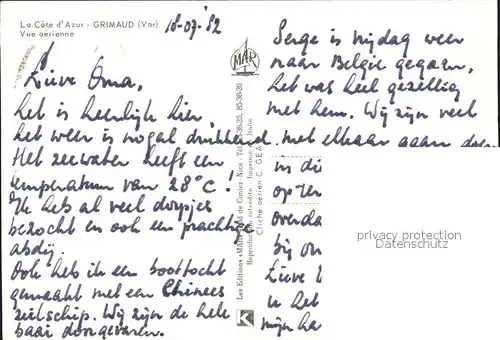 La Côte d'Azur - GRIMAUD (Var)
Vue aérienne
18-07-'82
Lieve Oma,
het is heerlijk hier,
het weer is nogal drukkend.
Het zeewater heeft een
temperatuur van 28°C!
Ik heb al veel dorpjes
bezocht en ook een prachtige
abdij.
Ook heb ik een boottocht
gemaakt met een Chinees
zeilschip. Wij zijn de hele
baai doorgevaren.
MAR
Les Editions «MAR»
de Cimiez - Nice - Tél.
Reproduction interdite - Imprimé en Italie
Cliché aérien C. GEA
K
Serge is vrijdag weer
naar België gegaan,
het was heel gezellig
met hem. Wij zijn veel
met elkaar gaan
in di
op ter
overda
bij on
Lieve
u het
mijn ha
privacy protection
Datenschutz